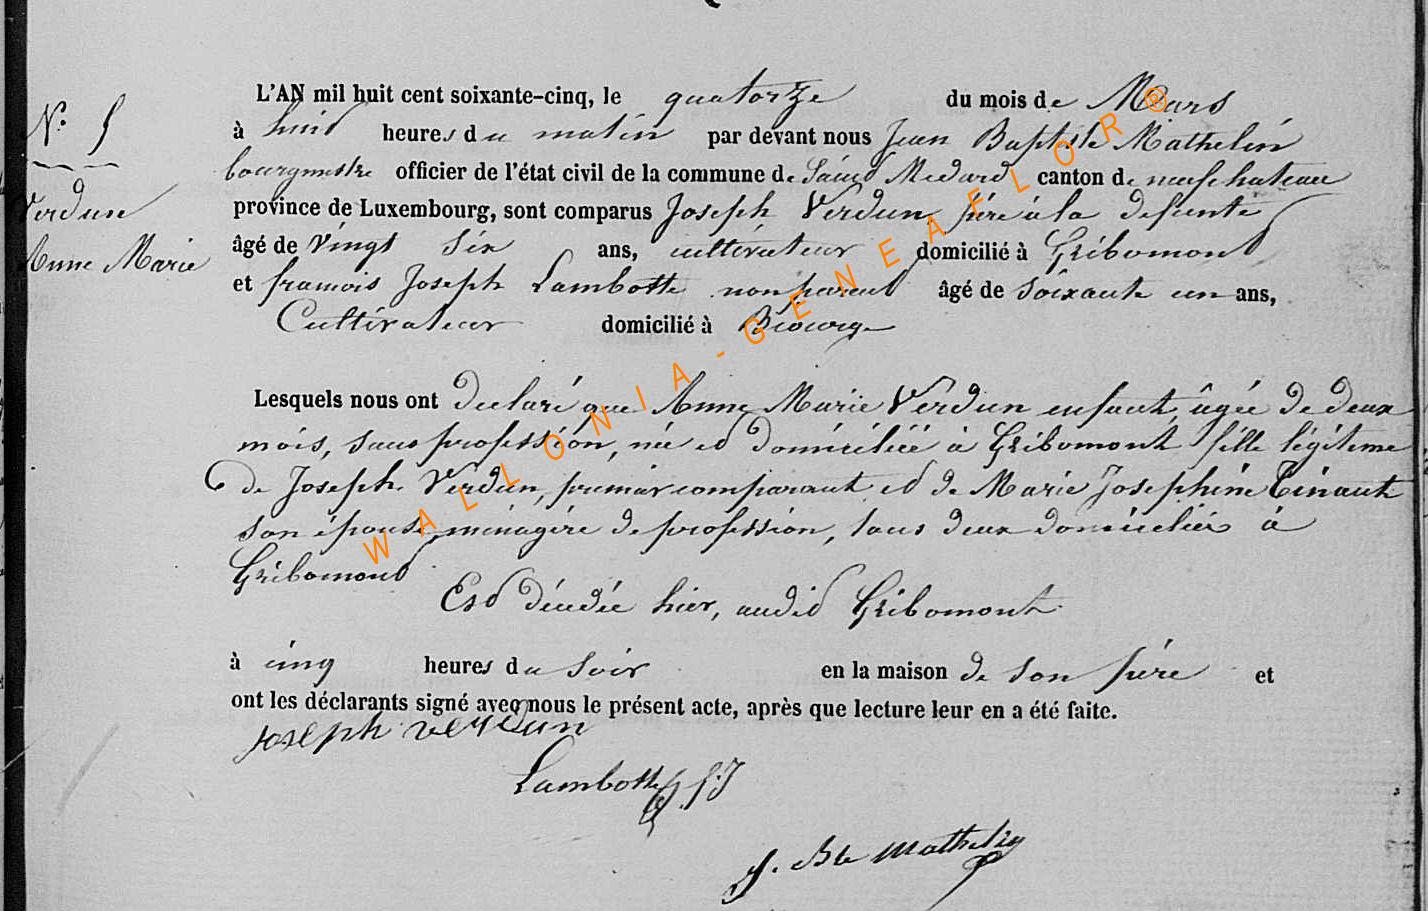 L'AN mil huit cent soixante-cinq, le quatorze du mois de Mars
N° 5
à huit heures du matin par devant nous Jean Baptiste Mathelin
bourgmestre officier de l'état civil de la commune de Saint Medard canton de neufchateau
Verdun
province de Luxembourg, sont comparus Joseph Verdun, père à la defunte
Anne Marie
âgé de Vingt Six ans, cultivateur domicilié à Gribomont
et francois Joseph Lambotte non parent âgé de soixante un ans,
Cultivateur domicilié à Biourge
Lesquels nous ont declaré que Anne Marie Verdun enfant, âgée de deux
mois, sans profession, née et domiciliée à Gribomont fille légitime
de Joseph Verdun, primier comparant et de Marie Josephine Tinant
son épouse ménagère de profession, tous deux domiciliés à
Gribomont
Est décédée hier, audit Gribomont
à cinq heures du soir en la maison de son père et
ont les déclarants signé avec nous le présent acte, après que lecture leur en a été faite.
joseph verdun
Lambotte f.J
J. Bte Mathelin
WALLONIA-GENEAFLOR®